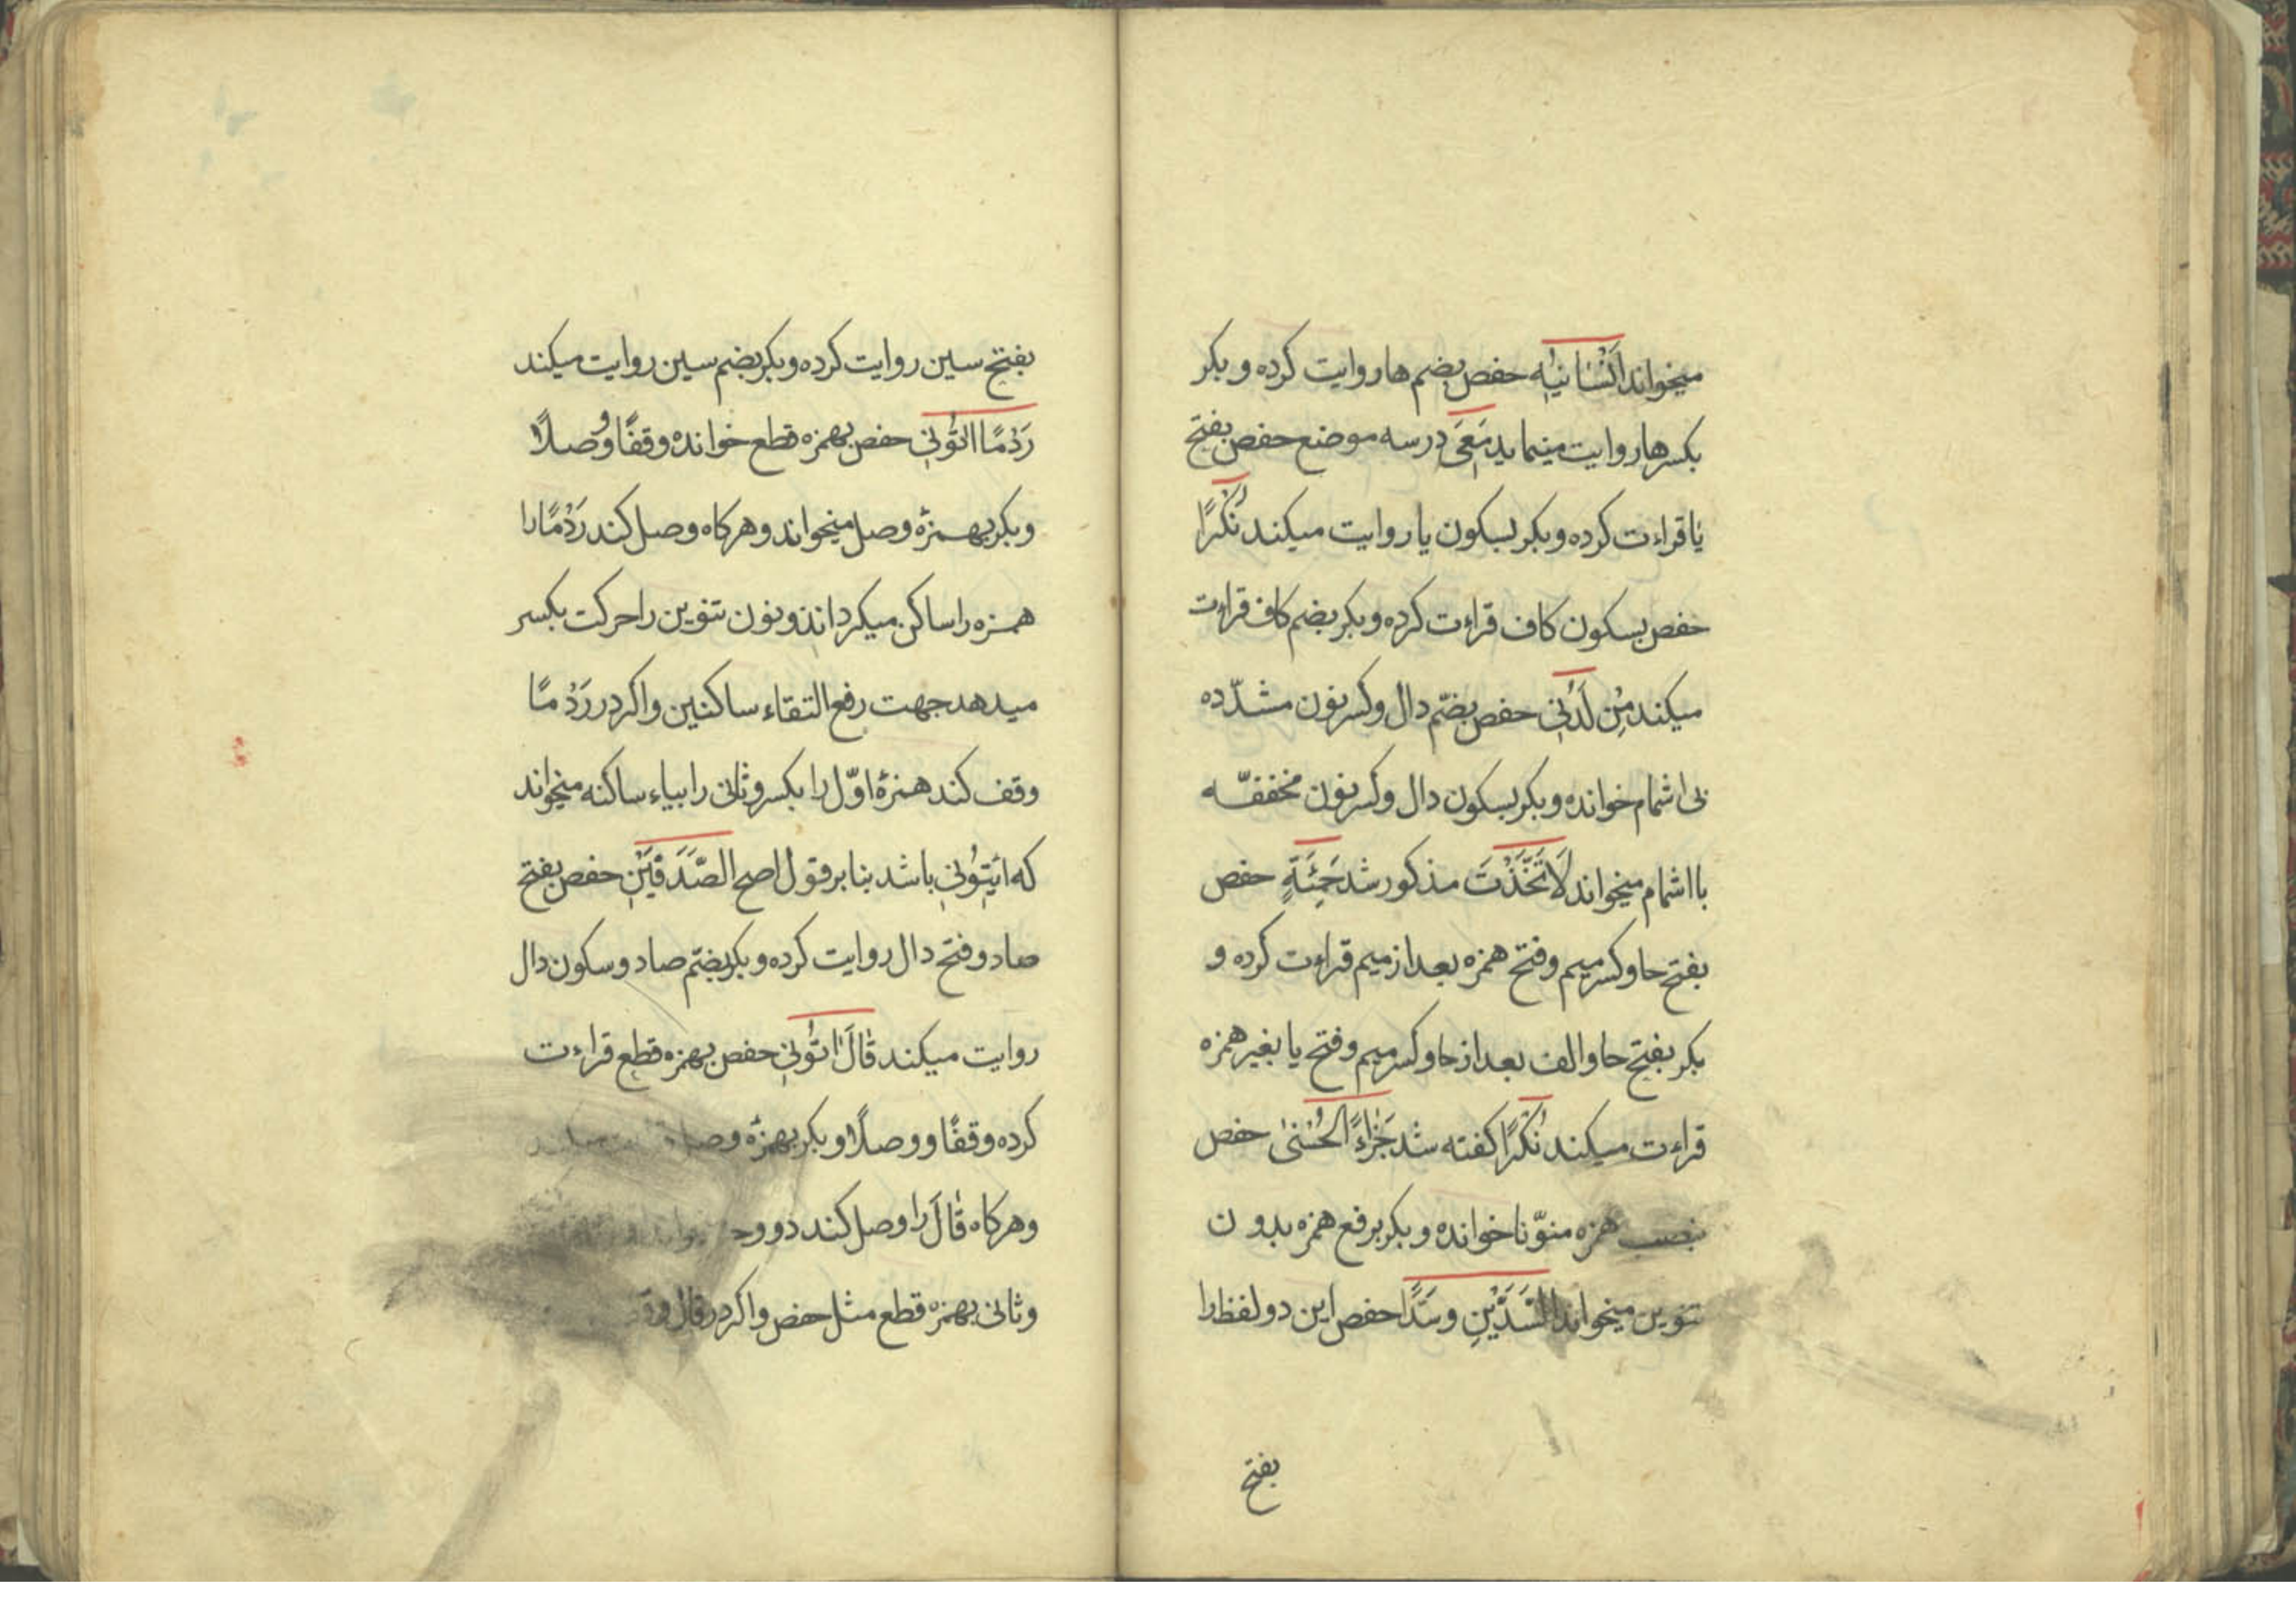 میخواند اَنْسٰانیٖهِ حفص بضم ها روایت کرده و بکر
بکسر ها روایت مینماید مَعِیَ در سه موضع حفص بفتح
یا قراءت کرده و بکر بسکون یا روایت میکند نُكْرًا
حفص بسکون کاف قراءت کرده و بکر بضم کاف قراءت
میکند مِنْ لَدُنّیٖ حفص بضمّ دال و کسر نون مشدّده
بی اشمام خوانده و بکر بسکون دال و کسر نون مخففّه
با اشمام میخواند لَاتَّخَذْتَ مذکور شد حَمِئَةٍ حفص
بفتح حا و کسر میم و فتح همزه بعد از میم قراءت کرده و
بکر بفتح حا و الف بعد از حا و کسر میم و فتح یا بغیر همزه
قراءت میکند نُكْرًا کفته شد جَزٰاءً الْحُسْنىٰ حفص
بنصب همزه منوّنا خوانده و بکر برفع همزه بدون
تنوین میخواند السَّدَّیْنِ و سَدًّا حفص این دو لفظ را
بفتح
بفتح سین روایت کرده و بکر بضم سین روایت میکند
رَدْمًا اٰتُونیٖ حفص بهمزه قطع خوانده وقفًا و وصلًا
و بکر بهمزهٔ وصل میخواند و هرکاه وصل کند رَدْمًا را
همزه را ساکن میکرداند و نون تنوین را حرکت بکسر
میدهد جهت رفع التقاء ساکنین و اکر در رَدْمًا
وقف کند همزهٔ اوّل را بکسر و ثانی را بیاء ساکنه میخواند
که ایٖتُونیٖ باشد بنابر قول اصح الصَّدَفَیْنِ حفص بفتح
صاد و فتح دال روایت کرده و بکر بضمّ صاد و سکون دال
روایت میکند قٰالَ اٰتُونیٖ حفص بهمزه قطع قراءت
کرده وقفًا و وصلًا و بکر بهمزهٔ وصل میکند
و هرکاه قٰالَ را وصل کند دو
و ثانی بهمزه قطع مثل حفص و اکر در قال